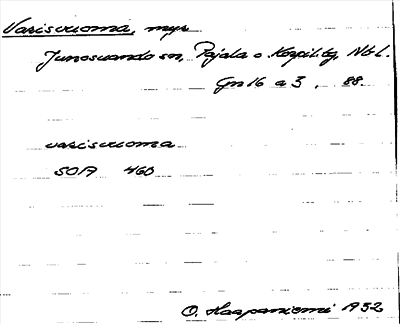 Varisvuoma, myr
Junosuando sn, Pajala o. Korpil. tg, Nbl.
Gn 16 a 3, 88.
varisvuoma
SOA 460
O. Haapaniemi 1932